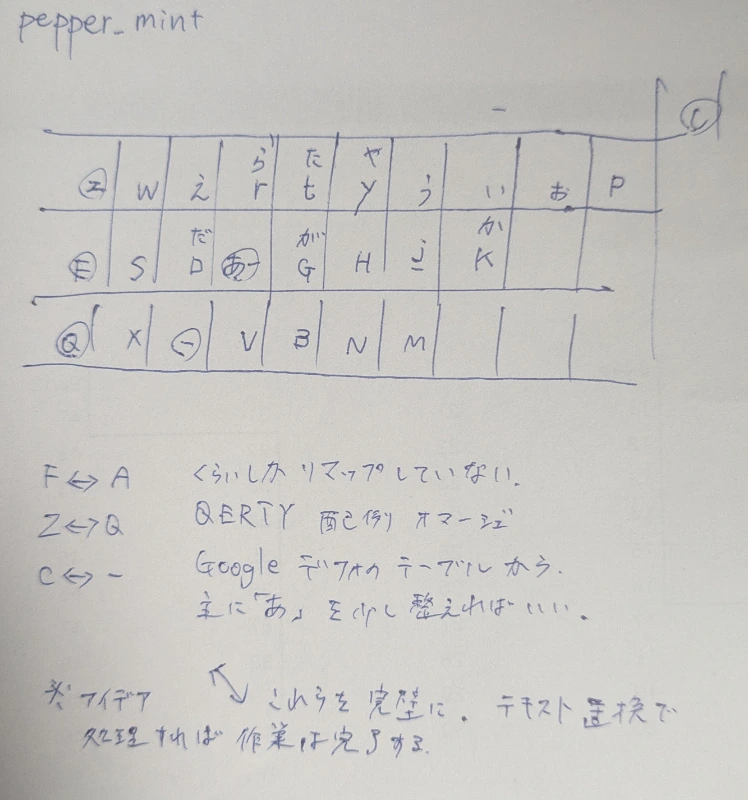 pepper_mint
-
C
ら た や
Z W え r t y う い お P
だ が か
F S D あ G H j K
Q X - V B N M
F↔A くらいしかリマップしていない.
Z↔Q QERTY 配列オマージュ
C↔- Google デフォのテーブルから.
主に「あ」を少し整えればいい。
アイデア これらを完璧に。テキスト置換で
処理すれば作業は完了する.